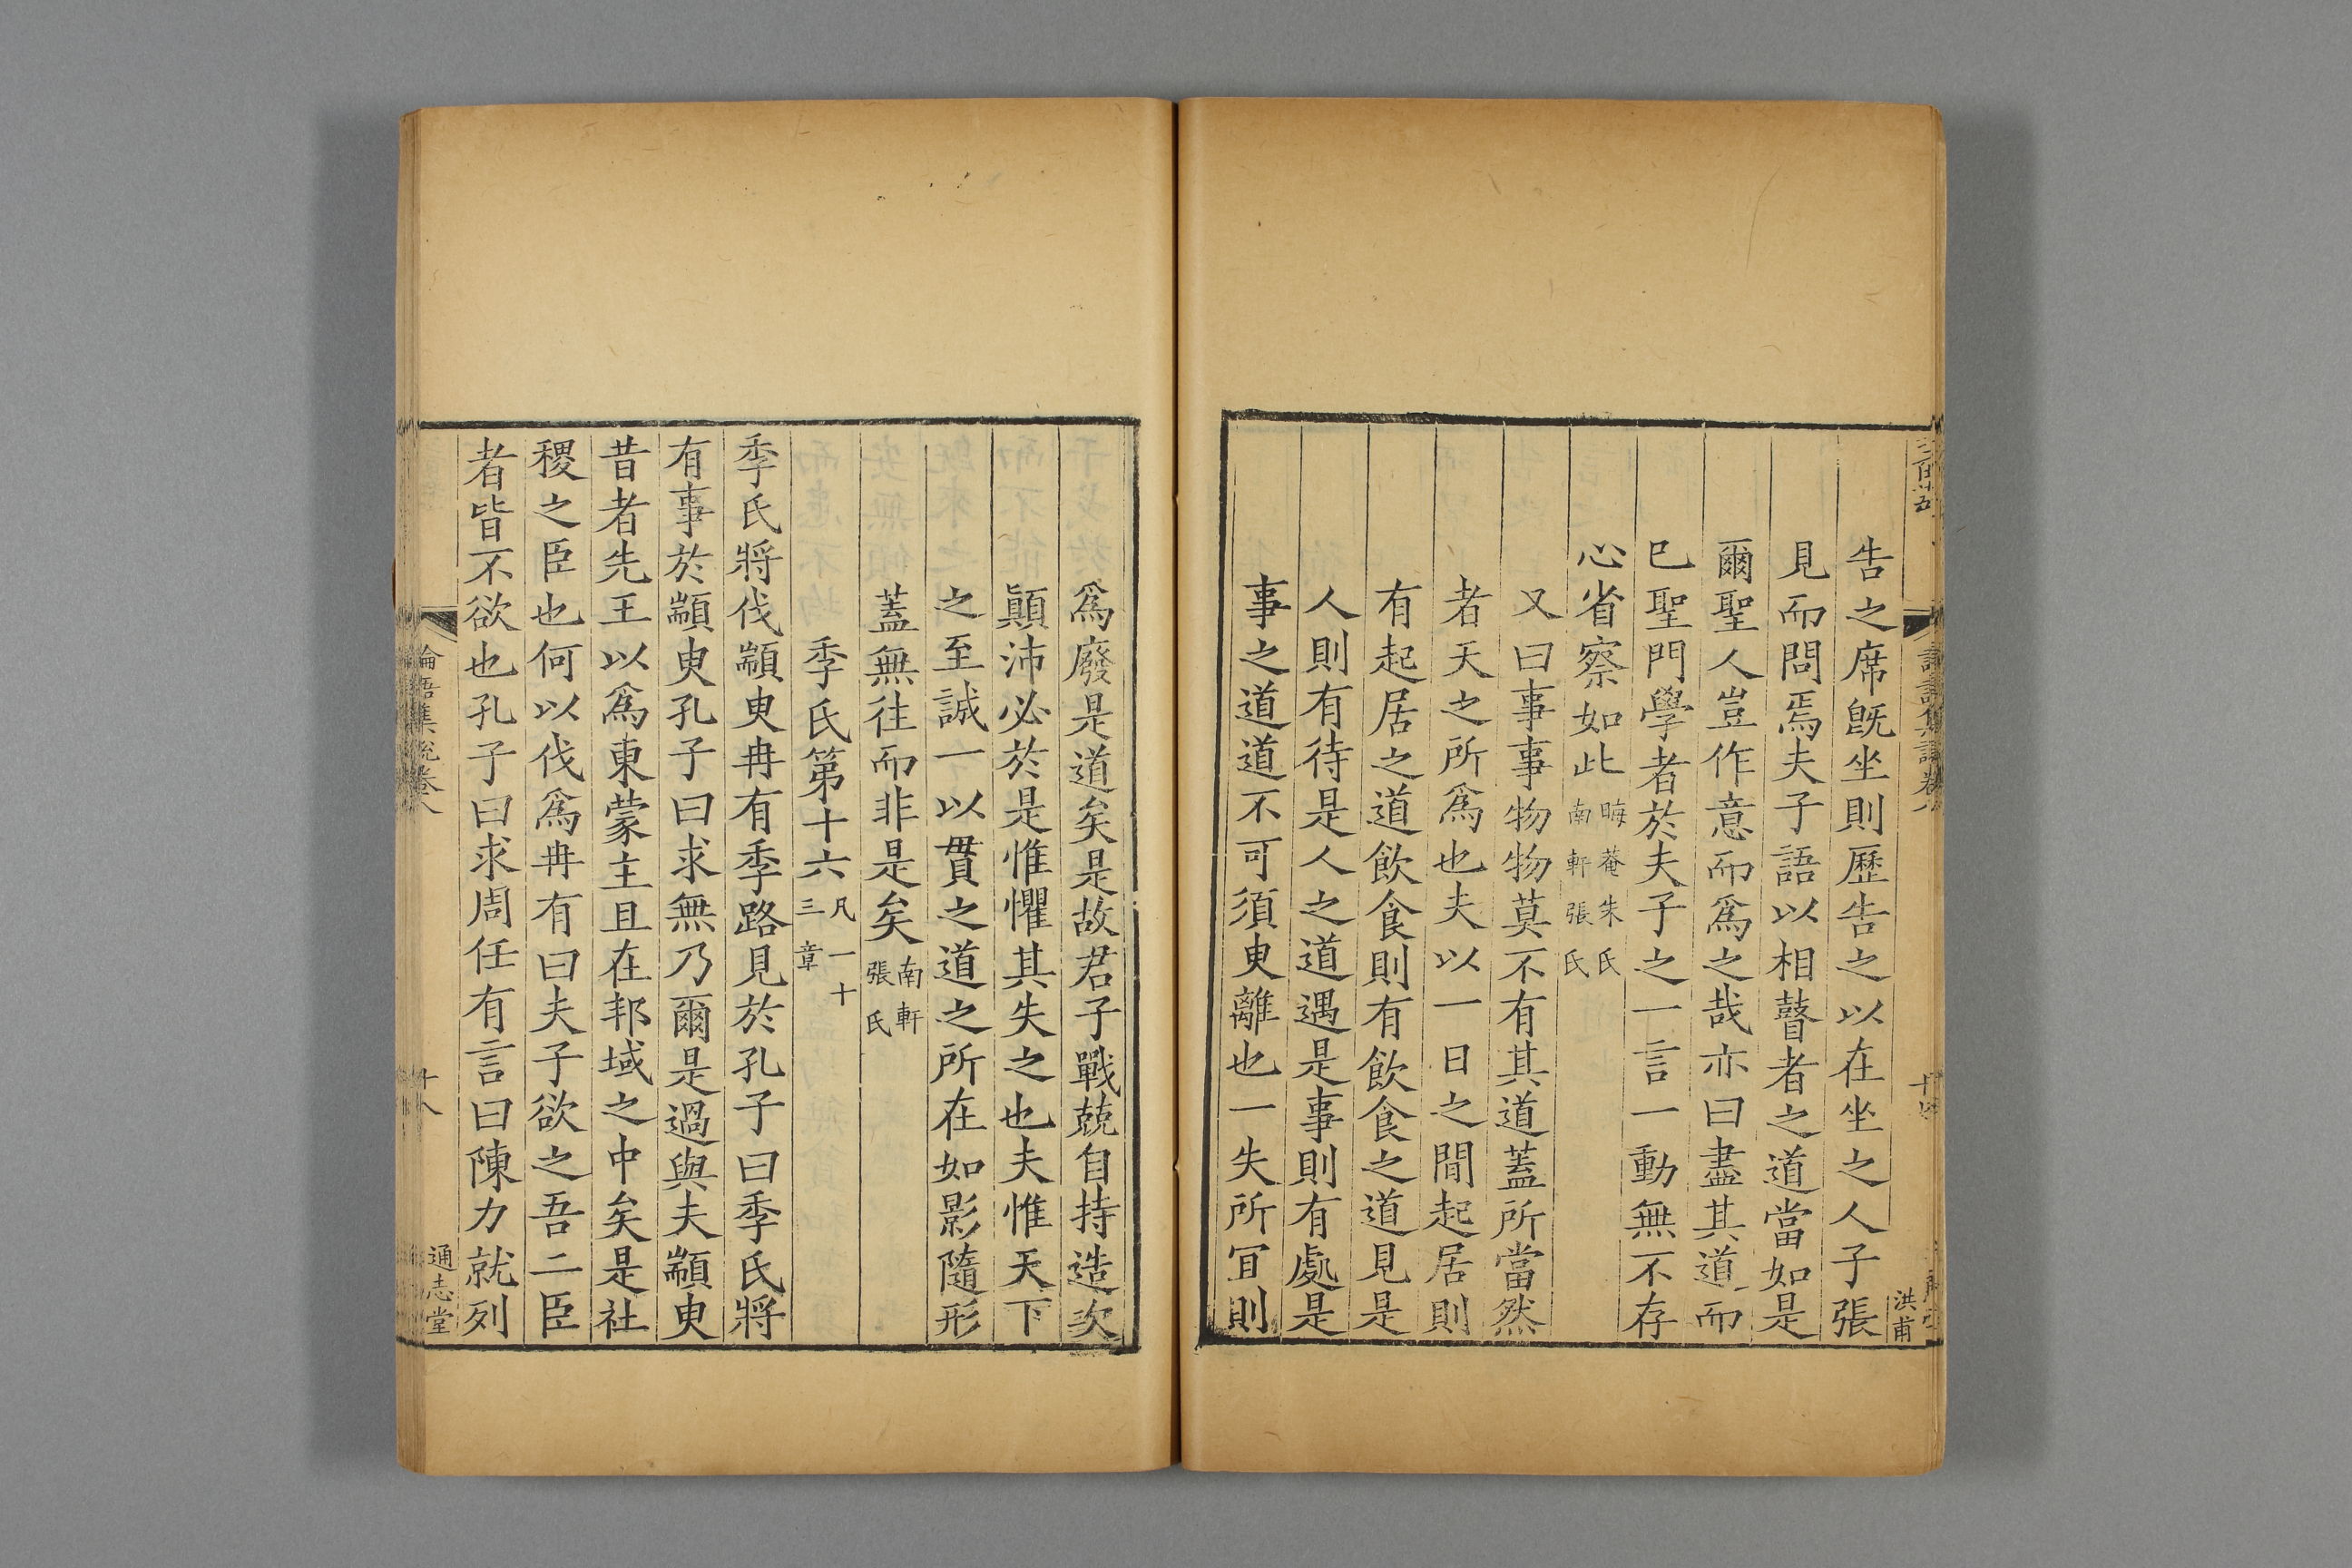 告之席旣坐則歷告之以在坐之人子張
見而問焉夫子語以相瞽者之道當如是
爾聖人豈作意而爲之哉亦曰盡其道而
已聖門學者於夫子之一言一動無不存
心省察如此晦菴朱氏南軒張氏
又曰事事物物莫不有其道蓋所當然
者天之所爲也夫以一日之閒起居則
有起居之道飲食則有飲食之道見是
人則有待是人之道遇是事則有處是
事之道道不可須臾離也一失所宜則
洪甫
爲廢是道矣是故君子戰兢自持造次
顚沛必於是惟懼其失之也夫惟天下
之至誠一以貫之道之所在如影隨形
蓋無往而非是矣南軒張氏
季氏第十六凡一十三章
季氏將伐顓臾冉有季路見於孔子曰季氏將
有事於顓臾孔子曰求無乃爾是過與夫顓臾
昔者先王以爲東蒙主且在邦域之中矣是社
稷之臣也何以伐爲冉有曰夫子欲之吾二臣
者皆不欲也孔子曰求周任有言曰陳力就列
論語集說卷八
十八
通志堂